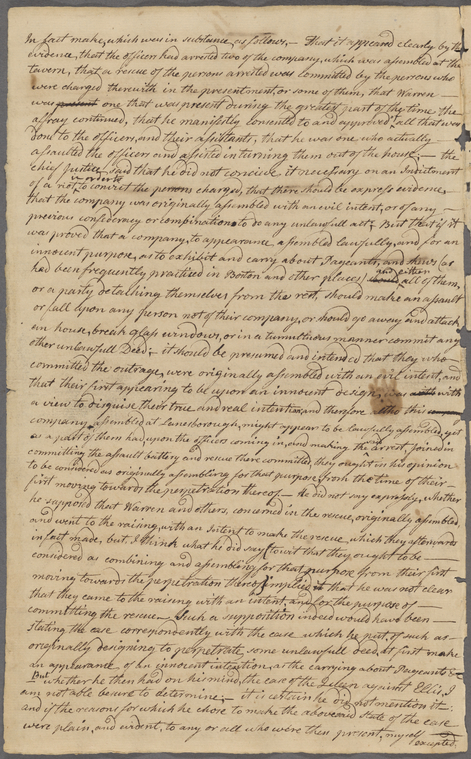 In fact make, which was in substance, as follows, — That it appeared clearly by the
evidence, that the officers had arrested two of the company, which was assembled at the
tavern, that a rescue of the persons arrested was committed by the persons who
were charged therewith in the presentment, or some of them, that Warren
was present one that was present during the greatest part of the time the
affray continued, that he manifestly consented to and approved all that was
done to the officers, and their assistants, that he was one who actually
assaulted the officers and assisted in turning them out of the house; — the
chief Justice said that he did not conceive it necessary on an Indictment
of a riot, in order to convict the persons charged, that there should be express evidence
that the company was originally assembled with an evil intent, or of any
previous confederacy or combination to do any unlawfull act; But that if it
was proved that a company, to appearance assembled lawfully, and for an
innocent purpose, as to exhibit and carry about Pageants, and shews (as
had been frequently practised in Boston and other places) and either all of them,
or a party detaching themselves from the rest, should make an assault
or fall upon any person not of their company, or should go away and attack
an house, break glass windows, or in a tumultuous manner commit any
other unlawfull Deed; it should be presumed and intended that they who
committed the outrage, were originally assembled with an evil intent, and
that their first appearing to be upon an innocent design, was with
a view to disguise their true and real intention, and therefore this
company assembled at Lanesborough, might appear to be lawfully assembled, yet
as a part of them had upon the officers coming in, and making the arrest, joined in
committing the assault battery and rescue there committed, they ought in his opinion
to be considered as originally assembling for that purpose, from the time of their
first moving towards the perpetration thereof — He did not say expressly, whether
he supposed that Warren and others, concerned in the rescue, originally assembled,
and went to the raising, with an Intent to make the rescue, which they afterwards
in fact made, but I think what he did say (to wit that they ought to be
considered as combining and assembling for that purpose from their first
moving towards the perpetration thereof) implied it that he was not clear
that they came to the raising with an intent, and for the purpose of
committing the rescue — Such a supposition indeed would have been
stating the case correspondently with the case which he put, of such as
originally designing to perpetrate some unlawfull deed, at first make
an appearance of an innocent intention, as the carrying about Pageants &c
But whether he then had on his mind, the case of the Queen against Ellis, I
am not able be sure to determine; — it is certain he did not mention it:
and if the reasons for which he chose to make the abovesaid State of the case
were plain, and evident, to any or all who were then present, myself
excepted,